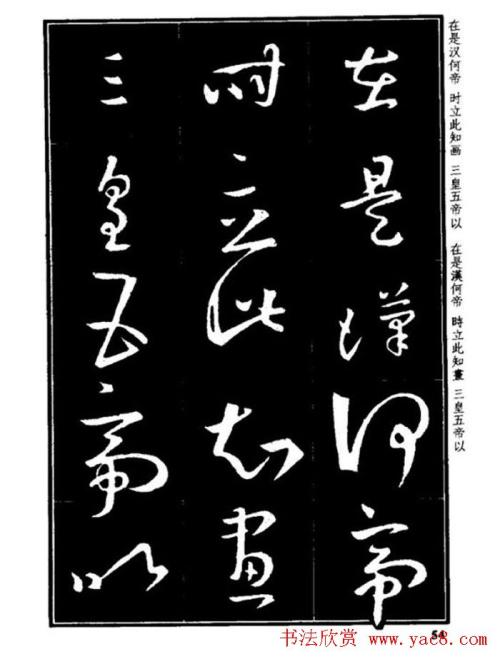 在是漢何帝
時立此知畫
三皇五帝以
在是汉何帝 时立此知画 三皇五帝以
在是漢何帝 時立此知畫 三皇五帝以
54
书法欣赏 www.yac8.com